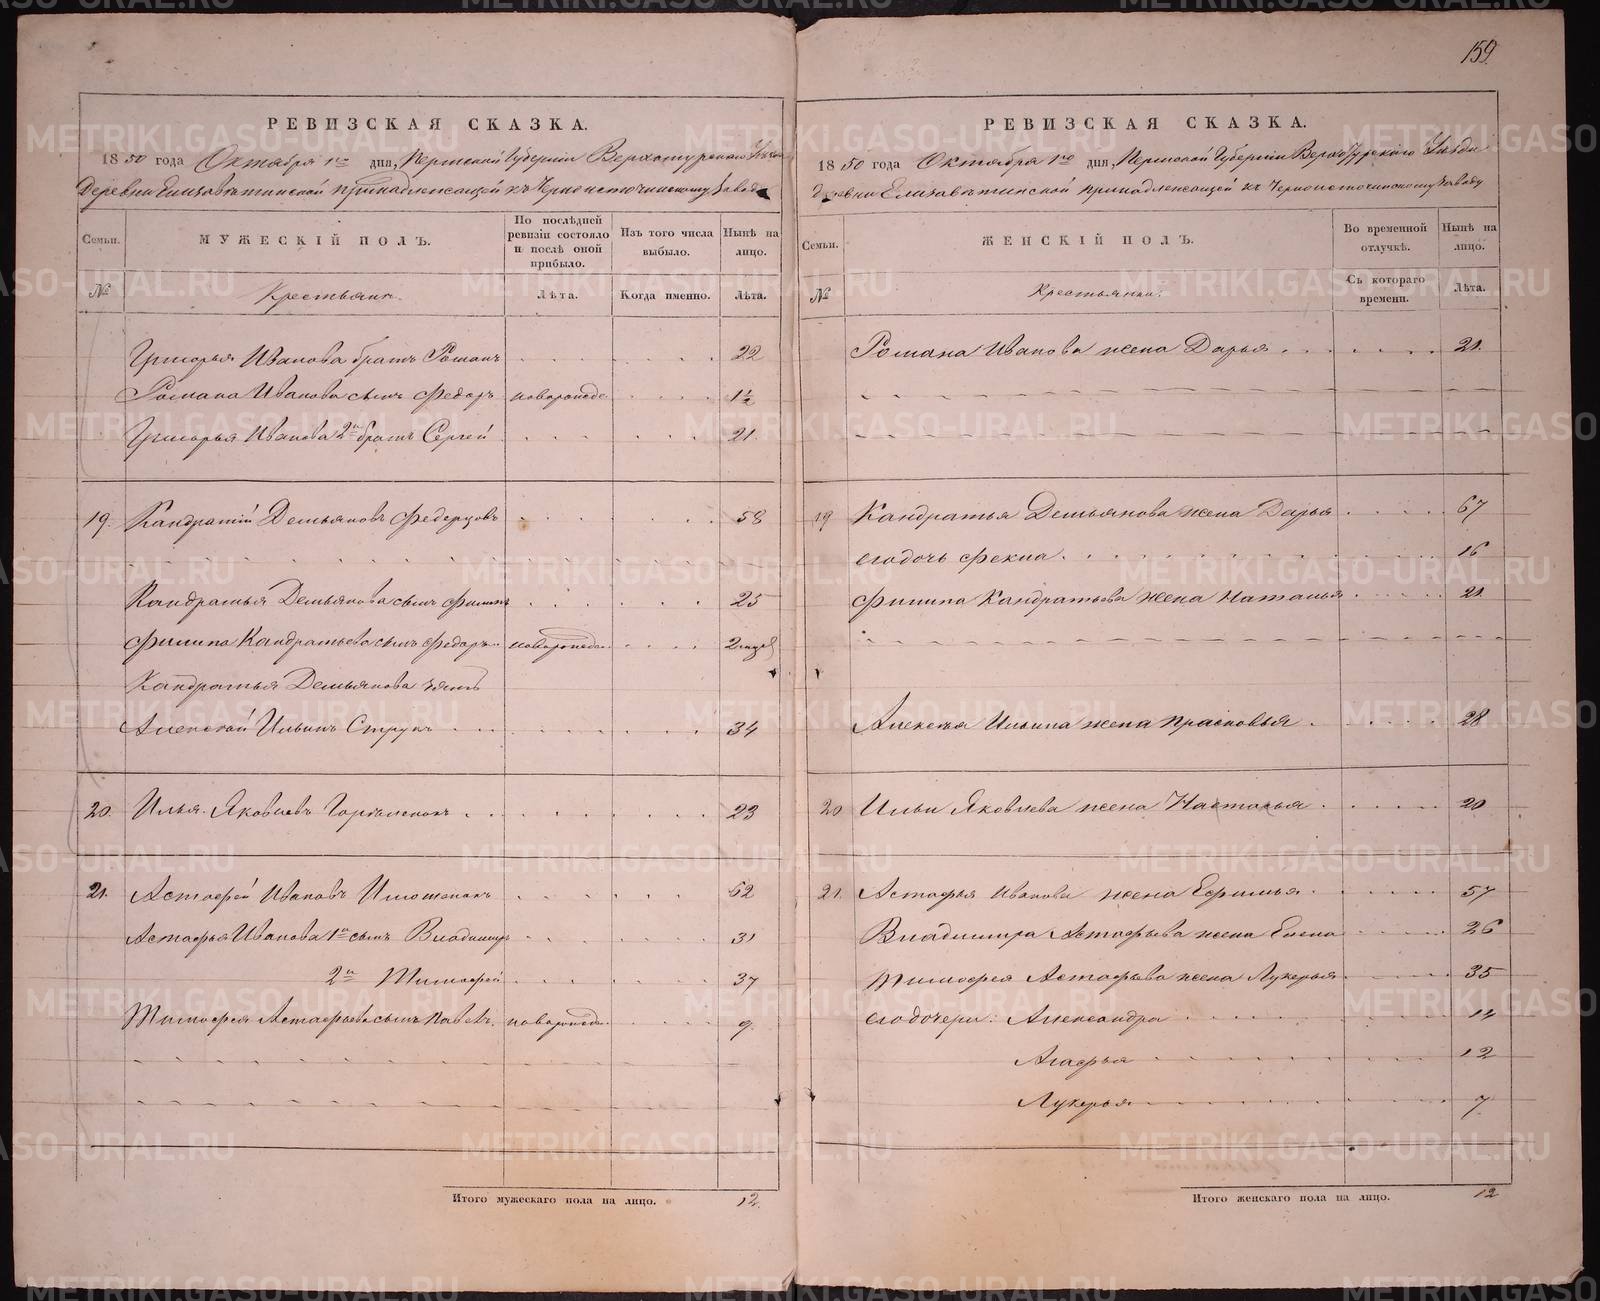 159
РЕВИЗСКАЯ СКАЗКА.
1850 года Октября 1го дня, Пермской Губернии Верхотурскаго Уезда
Деревни Елизаветинской принадлежащей къ Черноисточинскому Заводу
Семьи.
МУЖЕСКІЙ ПОЛЪ.
По послѣдней ревизіи состояло и послѣ оной прибыло.
Изъ того числа выбыло.
Нынѣ на лицо.
№
Крестьяне.
Лѣта.
Когда именно.
Лѣта.
Григорья Иванова братъ Романъ 22
Романа Иванова сынъ Федоръ новорожде. 1½
Григорья Иванова 2й братъ Сергей 21.
19. Кандратій Демьяновъ 58
Кандратья Демьянова сынъ Филипъ 25
Филипа Кандратьева сынъ Федоръ новорожде. 2
Кандратья Демьянова зять
Алексѣй Ильинъ 34
20. Илья Яковлевъ 23
21. Астафей Ивановъ 62
Астафья Иванова 1й сынъ Владимиръ 31
2й Тимофей 37
Тимофея Астафьева сынъ Павелъ новорожде. 9
Итого мужескаго пола на лицо. 12.
РЕВИЗСКАЯ СКАЗКА.
1850 года Октября 1го дня, Пермской Губерніи Верхотурскаго Уезда
Деревни Елизаветинской принадлежащей къ Черноисточинскому Заводу
Семьи.
ЖЕНСКІЙ ПОЛЪ.
Во временной отлучкѣ.
Нынѣ на лицо.
№
Крестьянки.
Съ котораго времени.
Лѣта.
Романа Иванова жена Дарья 21.
19 Кандратья Демьянова жена Дарья 67
его дочь Фекла 16
Филипа Кандратьева жена Наталья 21
Алексѣя Ильина жена Прасковья 28
20 Ильи Яковлева жена Настасья 20
21. Астафья Иванова жена Ефимья 57
Владимира Астафьева жена Елена 26
Тимофея Астафьева жена Лукерья 35
его дочери: Александра 14
Агафья 12
Лукерья 7
Итого женскаго пола на лицо. 12
METRIKI.GASO-URAL.RU